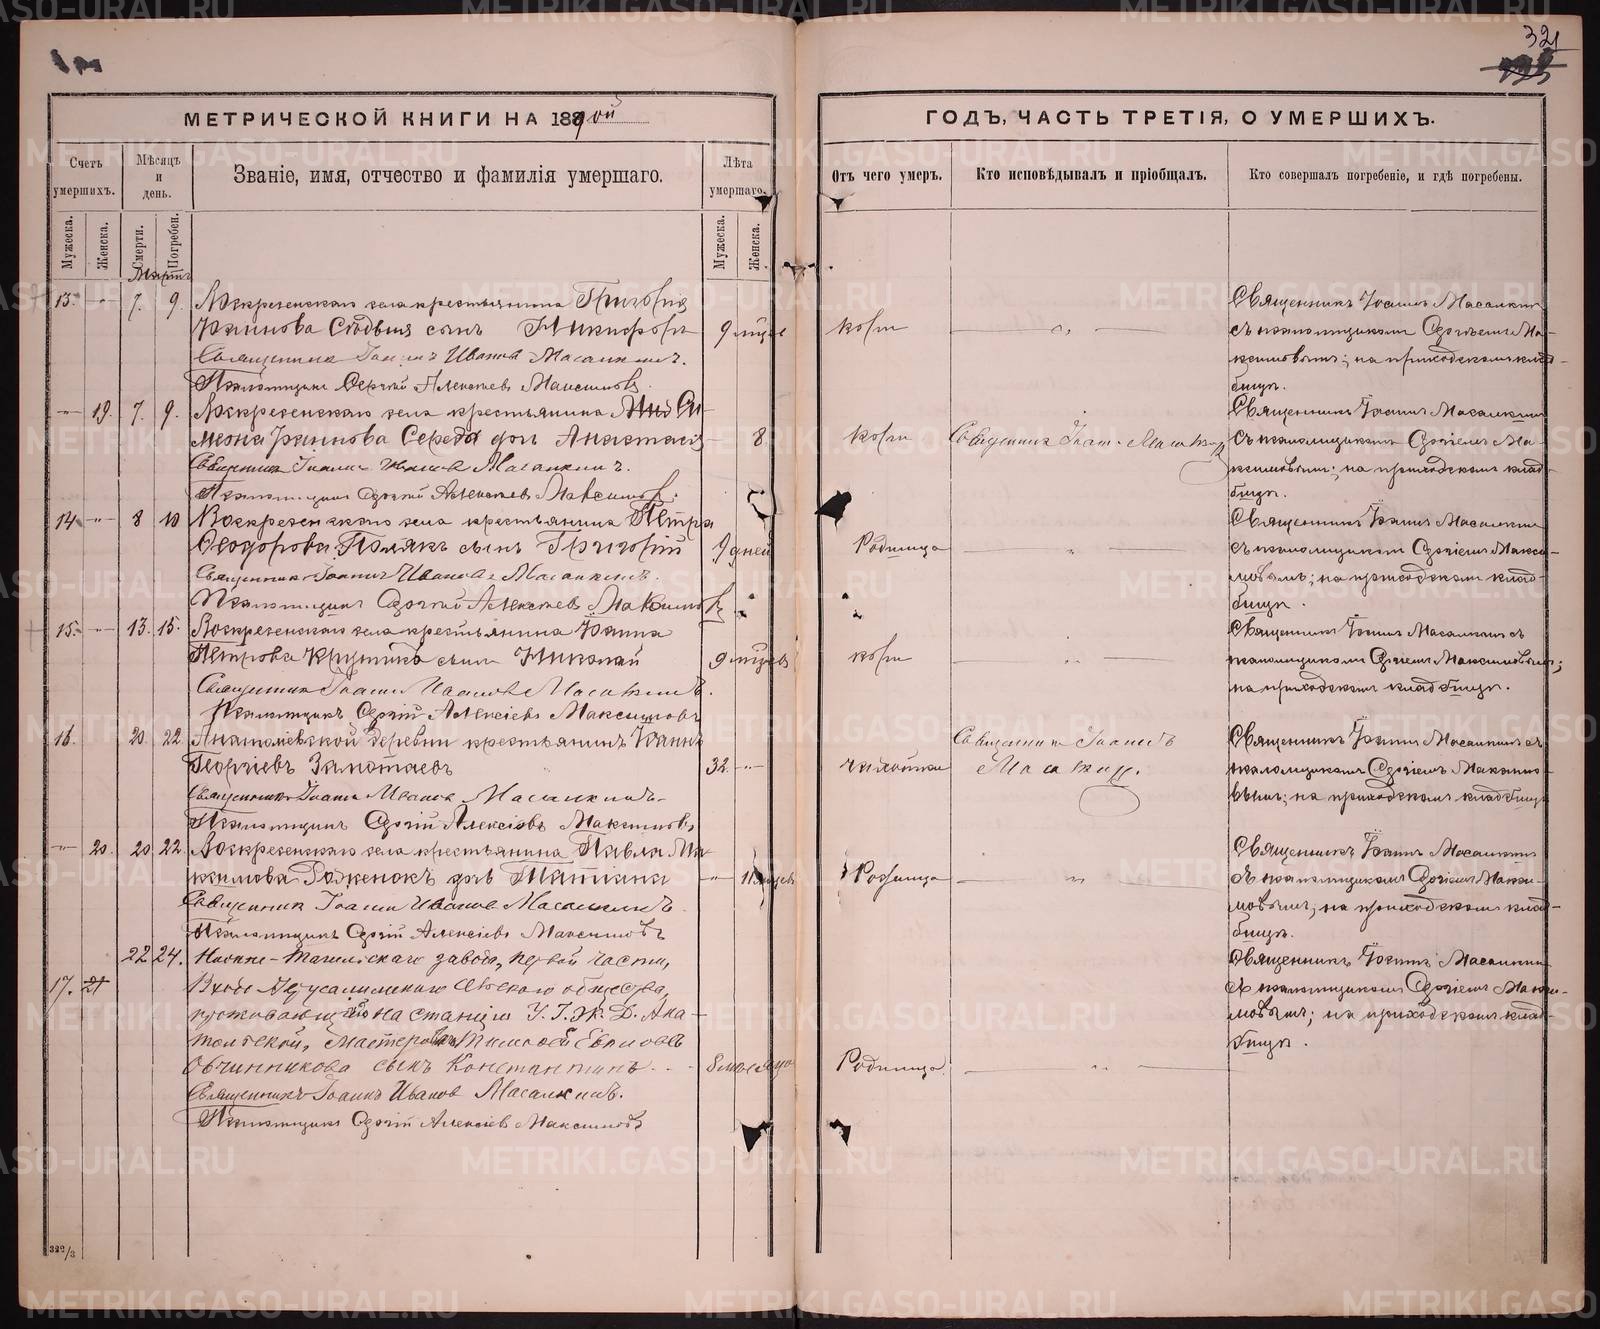 321
МЕТРИЧЕСКОЙ КНИГИ НА 1889ой
ГОДЪ, ЧАСТЬ ТРЕТІЯ, О УМЕРШИХЪ.
Счетъ умершихъ.
Мѣсяцъ и день.
Званіе, имя, отчество и фамилія умершаго.
Лѣта умершаго.
Отъ чего умеръ.
Кто исповѣдывалъ и пріобщалъ.
Кто совершалъ погребеніе, и гдѣ погребены.
Мужеска.
Женска.
Смерти.
Погребен.
Мужеска.
Женска.
Мартъ
13. 7. 9. Воскресенскаго села крестьянина Григорія
сынъ Никифоръ
Священникъ Іоаннъ Ивановъ Масалкинъ.
Псаломщикъ Сергій Алексіевъ Максимовъ
кори
Священникъ Іоаннъ Масалкинъ
съ псаломщикомъ Сергіемъ Ма-
ксимовымъ; на приходскомъ клад-
бищѣ.
19. 7. 9. Воскресенскаго села крестьянина Си-
меона Середа дочь Анастасія
8
Священникъ Іоаннъ Ивановъ Масалкинъ.
Псаломщикъ Сергій Алексіевъ Максимовъ.
кори
Священникъ Іоаннъ Масалкинъ
Священникъ Іоаннъ Масалкинъ
съ псаломщикомъ Сергіемъ Ма-
ксимовымъ; на приходскомъ клад-
бищѣ.
14 8 10 Воскресенскаго села крестьянина Петра
Ѳеодорова Полякъ сынъ Григорій
9 дней
Священникъ Іоаннъ Ивановъ Масалкинъ.
Псаломщикъ Сергій Алексіевъ Максимовъ
Родимца
Священникъ Іоаннъ Масалкинъ
съ псаломщикомъ Сергіемъ Макси-
мовымъ; на приходскомъ клад-
бищѣ.
15. 13. 15. Воскресенскаго села крестьянина Іоанна
Петрова сынъ Николай
9 мѣсяцевъ
Священникъ Іоаннъ Ивановъ Масалкинъ.
Псаломщикъ Сергій Алексіевъ Максимовъ
кори
Священникъ Іоаннъ Масалкинъ съ
псаломщикомъ Сергіемъ Максимовымъ;
на приходскомъ кладбищѣ.
16. 20 22 Анатоліевской деревни крестьянинъ Іоаннъ
Георгіевъ
32.
Священникъ Іоаннъ Ивановъ Масалкинъ
Псаломщикъ Сергій Алексіевъ Максимовъ
чахотки
Священникъ Іоаннъ
Масалкинъ.
Священникъ Іоаннъ Масалкинъ съ
псаломщикомъ Сергіемъ Максимо-
вымъ; на приходскомъ кладбищѣ
20. 20 22. Воскресенскаго села крестьянина Павла Ма-
ксимова дочь Татіана
Священникъ Іоаннъ Ивановъ Масалкинъ
Псаломщикъ Сергій Алексіевъ Максимовъ
Родимца
Священникъ Іоаннъ Масалкинъ
съ псаломщикомъ Сергіемъ Макси-
мовымъ; на приходскомъ клад-
бищѣ.
22 24. Нижне-Тагильскаго завода, первой части,
17. 21 Входо-Іерусалимскаго сельскаго общества,
проживающаго на станціи У. Г. Ж. Д. Ана-
тольской, мастероваго Тимоѳея
Овчинникова сынъ Константинъ
8 мѣсяцевъ
Священникъ Іоаннъ Ивановъ Масалкинъ.
Псаломщикъ Сергій Алексіевъ Максимовъ
Родимца
Священникъ Іоаннъ Масалкинъ
съ псаломщикомъ Сергіемъ Макси-
мовымъ; на приходскомъ клад-
бищѣ.
322/3
METRIKI.GASO-URAL.RU